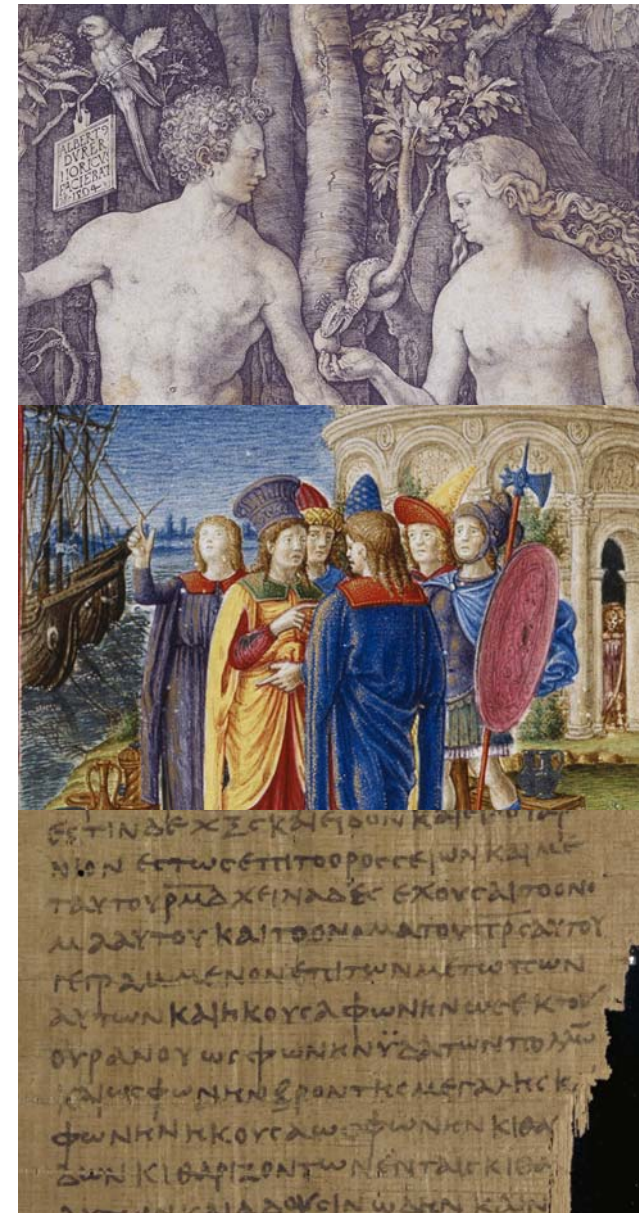 ALBERT9
DVRER
NORICVS
FACIEBAT
1504
ΕϹΤΙΝ ΔΕ ΧΞϚ ΚΑΙ ΕΙΔΟΝ ΚΑΙ
ΝΙΟΝ ΕϹΤΩϹ ΕΠΙ ΤΟ ΟΡΟϹ ϹΕΙΩΝ ΚΑΙ ΜΕ
Τ ΑΥΤΟΥ ΡΜΔ ΕΧΟΥϹΑΙ ΤΟ ΟΝΟ
ΜΑ ΑΥΤΟΥ ΚΑΙ ΤΟ ΟΝΟΜΑ ΤΟΥ ΠΡϹ ΑΥΤΟΥ
ΓΕΓΡΑΜΜΕΝΟΝ ΕΠΙ ΤΩΝ ΜΕΤΩΠΩΝ
ΑΥΤΩΝ ΚΑΙ ΗΚΟΥϹΑ ΦΩΝΗΝ ΩϹ ΕΚ ΤΟΥ
ΟΥΡΑΝΟΥ ΩϹ ΦΩΝΗΝ ΫΔΑΤΩΝ ΠΟΛΛΩ̅
ΚΑΙ ΩϹ ΦΩΝΗΝ ΒΡΟΝΤΗϹ ΜΕΓΑΛΗϹ Κ
ΦΩΝΗΝ ΗΚΟΥϹΑ ΩϹ ΦΩΝΗΝ ΚΙΘΑ
ΔΩΝ ΚΙΘΑΡΙΖΟΝΤΩΝ ΕΝ ΤΑΙϹ ΚΙΘΑ
ΚΑΙ ΑΔΟΥϹΙΝ ΩΔΗΝ ΚΑΙΝ